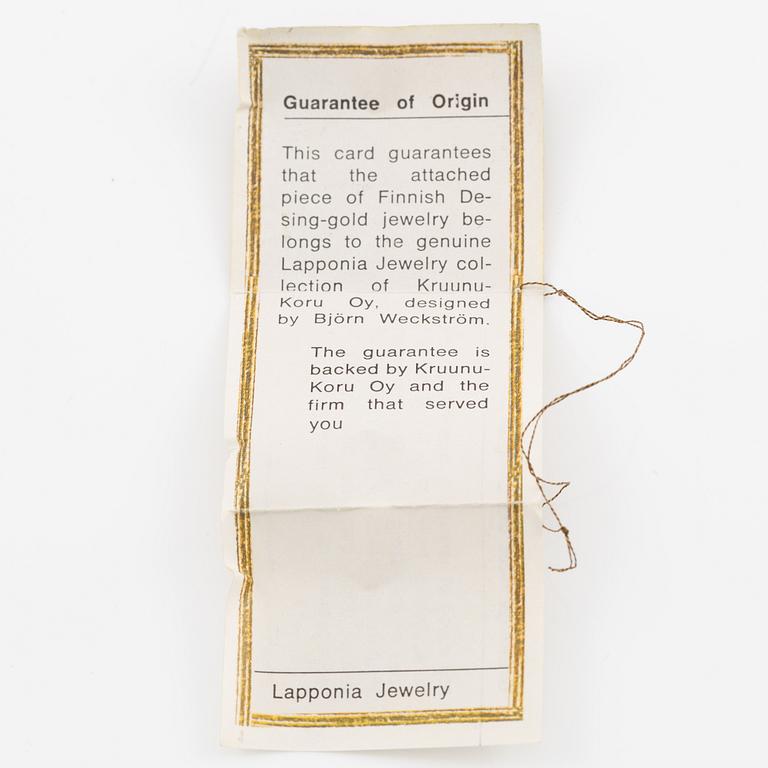 Guarantee of Origin
This card guarantees
that the attached
piece of Finnish De-
sing-gold jewelry be-
longs to the genuine
Lapponia Jewelry col-
lection of Kruunu-
Koru Oy, designed
by Björn Weckström.
The guarantee is
backed by Kruunu-
Koru Oy and the
firm that served
you
Lapponia Jewelry